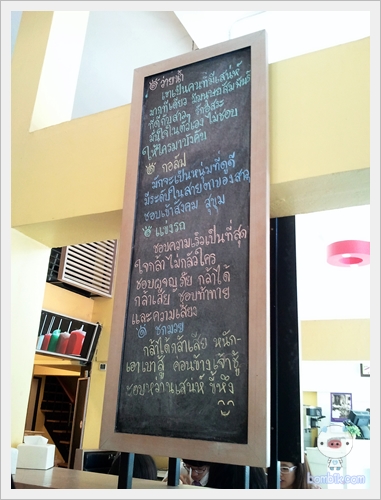 ว่ายน้ำ
เขาเป็นคนที่มีเสน่ห์
มากทีเดียว มีมนุษยสัมพันธ์
ที่ดีกับสาวๆ รักอิสระ
มั่นใจในตัวเอง ไม่ชอบ
ให้ใครมาบังคับ
กอล์ฟ
มักจะเป็นหนุ่มที่ดูดี
มีระดับในสายตาของสาวๆ
ชอบเข้าสังคม สุขุม
แข่งรถ
ชอบความเร็วเป็นที่สุด
ใจกล้า ไม่กลัวใคร
ชอบผจญภัย กล้าได้
กล้าเสีย ชอบท้าทาย
และความเสี่ยง
ชกมวย
กล้าได้กล้าเสีย หนัก-
เอาเบาสู้ ค่อนข้างเจ้าชู้
ชอบหว่านเสน่ห์ ขี้หึง
bombik.com